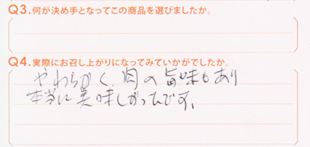 Q3.何が決め手となってこの商品を選びましたか。
Q4.実際にお召し上がりになってみていかがでしたか。
やわらかく、肉の旨味もあり
本当に美味しかったです。